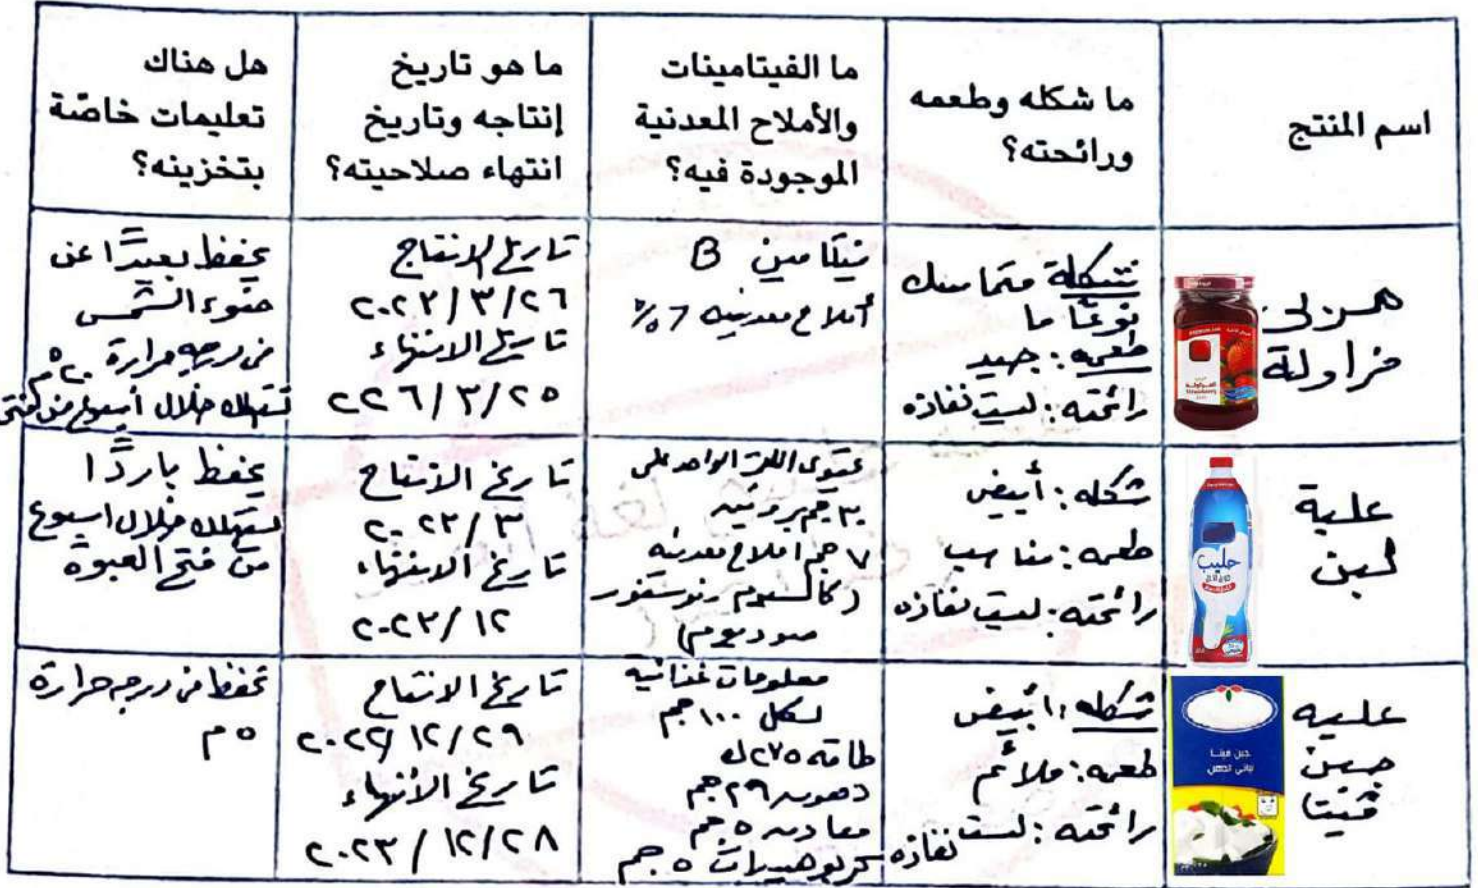 اسم المنتج
ما شكله وطعمه
ورائحته؟
ما الفيتامينات
والأملاح المعدنية
الموجودة فيه؟
ما هو تاريخ
إنتاجه وتاريخ
انتهاء صلاحيته؟
هل هناك
تعليمات خاصّة
بتخزينه؟
مربى
فراولة
شكله متماسك
نوعًا ما
طعمه: جيد
رائحته: ليست نفاذه
فيتامين B
أملاح معدنيه
تاريخ الانتاج
٢٠٢٢/٣/٢٦
تاريخ الانتهاء
٢٢٦/٣/٢٥
يحفظ بعيدًا عن
ضوء الشمس
فى درجه حرارة ٢٠°م
تستهلك خلال أسبوع من فتح
علبة
لبن
حليب
شكله: أبيض
طعمه: مناسب
رائحته: ليست نفاذه
يحتوى اللتر الواحد على
٣٠ جم بروتين
٧ جم املاح معدنيه
(كالسيوم، فوسفور
صوديوم)
تاريخ الانتاج
٢٠٢٣/٣
تاريخ الانتهاء
٢٠٢٣/١٢
يحفظ باردًا
يستهلك خلال اسبوع
من فتح العبوة
علبه
جبن
فيتا
جبن فيتا
نباتي الدهن
شكله: أبيض
طعمه: ملائم
رائحته: ليست نفاذه
معلومات غذائيه
لكل ١٠٠ جم
طاقه ٢٧٥ ك
دهون ٢٩ جم
معادن ٥ جم
كربوهيدرات ٥ جم
تاريخ الانتاج
٢٠٢٢/١٢/٢٩
تاريخ الأنتهاء
٢٠٢٣/١٢/٢٨
تحفظ فى درجه حرارة
٥ م